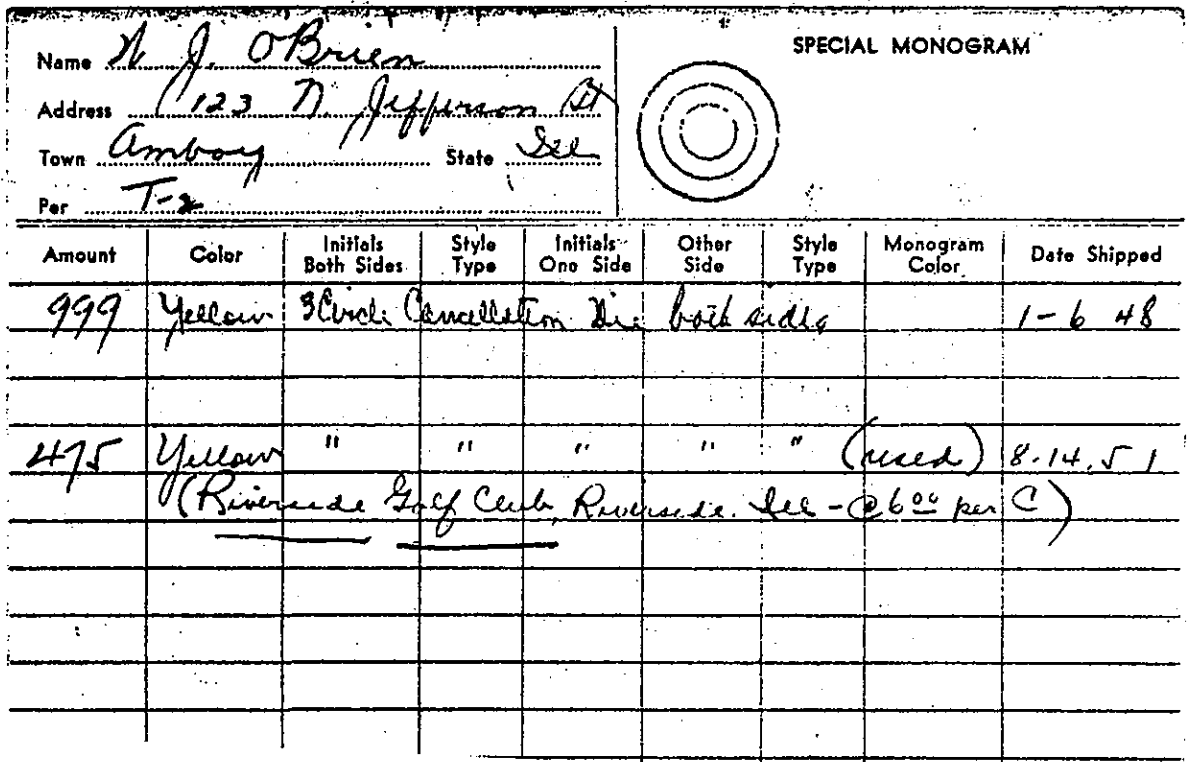 SPECIAL MONOGRAM
Name W J. O'Brien
Address 123 N. Jefferson St
Town Amboy State Ill
Per T-2
Amount Color Initials Both Sides Style Type Initials One Side Other Side Style Type Monogram Color Date Shipped
999 Yellow 3 Circle Cancellation Die both sides 1-6 48
475 Yellow " " " " " (used) 8.14.51
(Riverside Golf Club, Riverside. Ill - @ 6 00 per C)